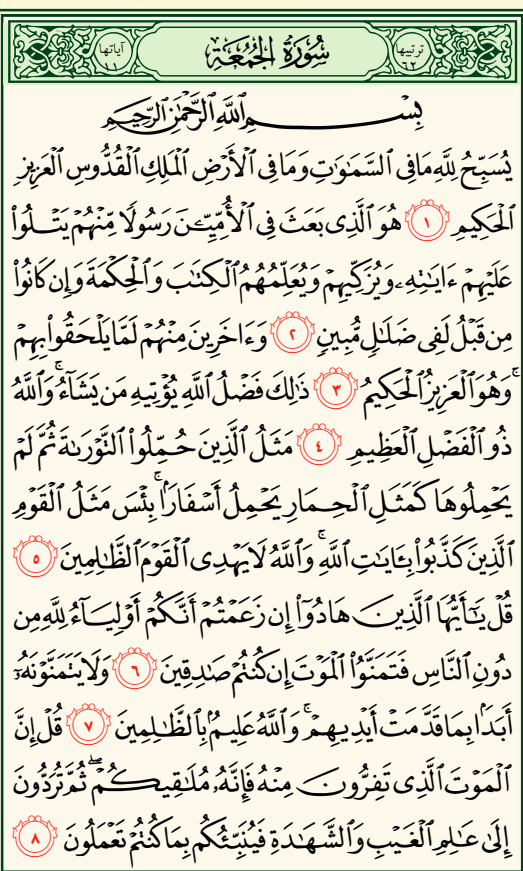 ترتيبها ٦٢
سُورَةُ الجُمُعَةِ
آياتها ١١
بِسْمِ ٱللَّهِ ٱلرَّحْمَٰنِ ٱلرَّحِيمِ
يُسَبِّحُ لِلَّهِ مَا فِى ٱلسَّمَٰوَٰتِ وَمَا فِى ٱلْأَرْضِ ٱلْمَلِكِ ٱلْقُدُّوسِ ٱلْعَزِيزِ
ٱلْحَكِيمِ ١ هُوَ ٱلَّذِى بَعَثَ فِى ٱلْأُمِّيِّـۧنَ رَسُولًا مِّنْهُمْ يَتْلُوا۟
عَلَيْهِمْ ءَايَٰتِهِۦ وَيُزَكِّيهِمْ وَيُعَلِّمُهُمُ ٱلْكِتَٰبَ وَٱلْحِكْمَةَ وَإِن كَانُوا۟
مِن قَبْلُ لَفِى ضَلَٰلٍ مُّبِينٍ ٢ وَءَاخَرِينَ مِنْهُمْ لَمَّا يَلْحَقُوا۟ بِهِمْ ۚ
وَهُوَ ٱلْعَزِيزُ ٱلْحَكِيمُ ٣ ذَٰلِكَ فَضْلُ ٱللَّهِ يُؤْتِيهِ مَن يَشَآءُ ۚ وَٱللَّهُ
ذُو ٱلْفَضْلِ ٱلْعَظِيمِ ٤ مَثَلُ ٱلَّذِينَ حُمِّلُوا۟ ٱلتَّوْرَىٰةَ ثُمَّ لَمْ
يَحْمِلُوهَا كَمَثَلِ ٱلْحِمَارِ يَحْمِلُ أَسْفَارًۢا ۚ بِئْسَ مَثَلُ ٱلْقَوْمِ
ٱلَّذِينَ كَذَّبُوا۟ بِـَٔايَٰتِ ٱللَّهِ ۚ وَٱللَّهُ لَا يَهْدِى ٱلْقَوْمَ ٱلظَّٰلِمِينَ ٥
قُلْ يَٰٓأَيُّهَا ٱلَّذِينَ هَادُوٓا۟ إِن زَعَمْتُمْ أَنَّكُمْ أَوْلِيَآءُ لِلَّهِ مِن
دُونِ ٱلنَّاسِ فَتَمَنَّوُا۟ ٱلْمَوْتَ إِن كُنتُمْ صَٰدِقِينَ ٦ وَلَا يَتَمَنَّوْنَهُۥٓ
أَبَدًۢا بِمَا قَدَّمَتْ أَيْدِيهِمْ ۚ وَٱللَّهُ عَلِيمٌۢ بِٱلظَّٰلِمِينَ ٧ قُلْ إِنَّ
ٱلْمَوْتَ ٱلَّذِى تَفِرُّونَ مِنْهُ فَإِنَّهُۥ مُلَٰقِيكُمْ ۖ ثُمَّ تُرَدُّونَ
إِلَىٰ عَٰلِمِ ٱلْغَيْبِ وَٱلشَّهَٰدَةِ فَيُنَبِّئُكُم بِمَا كُنتُمْ تَعْمَلُونَ ٨